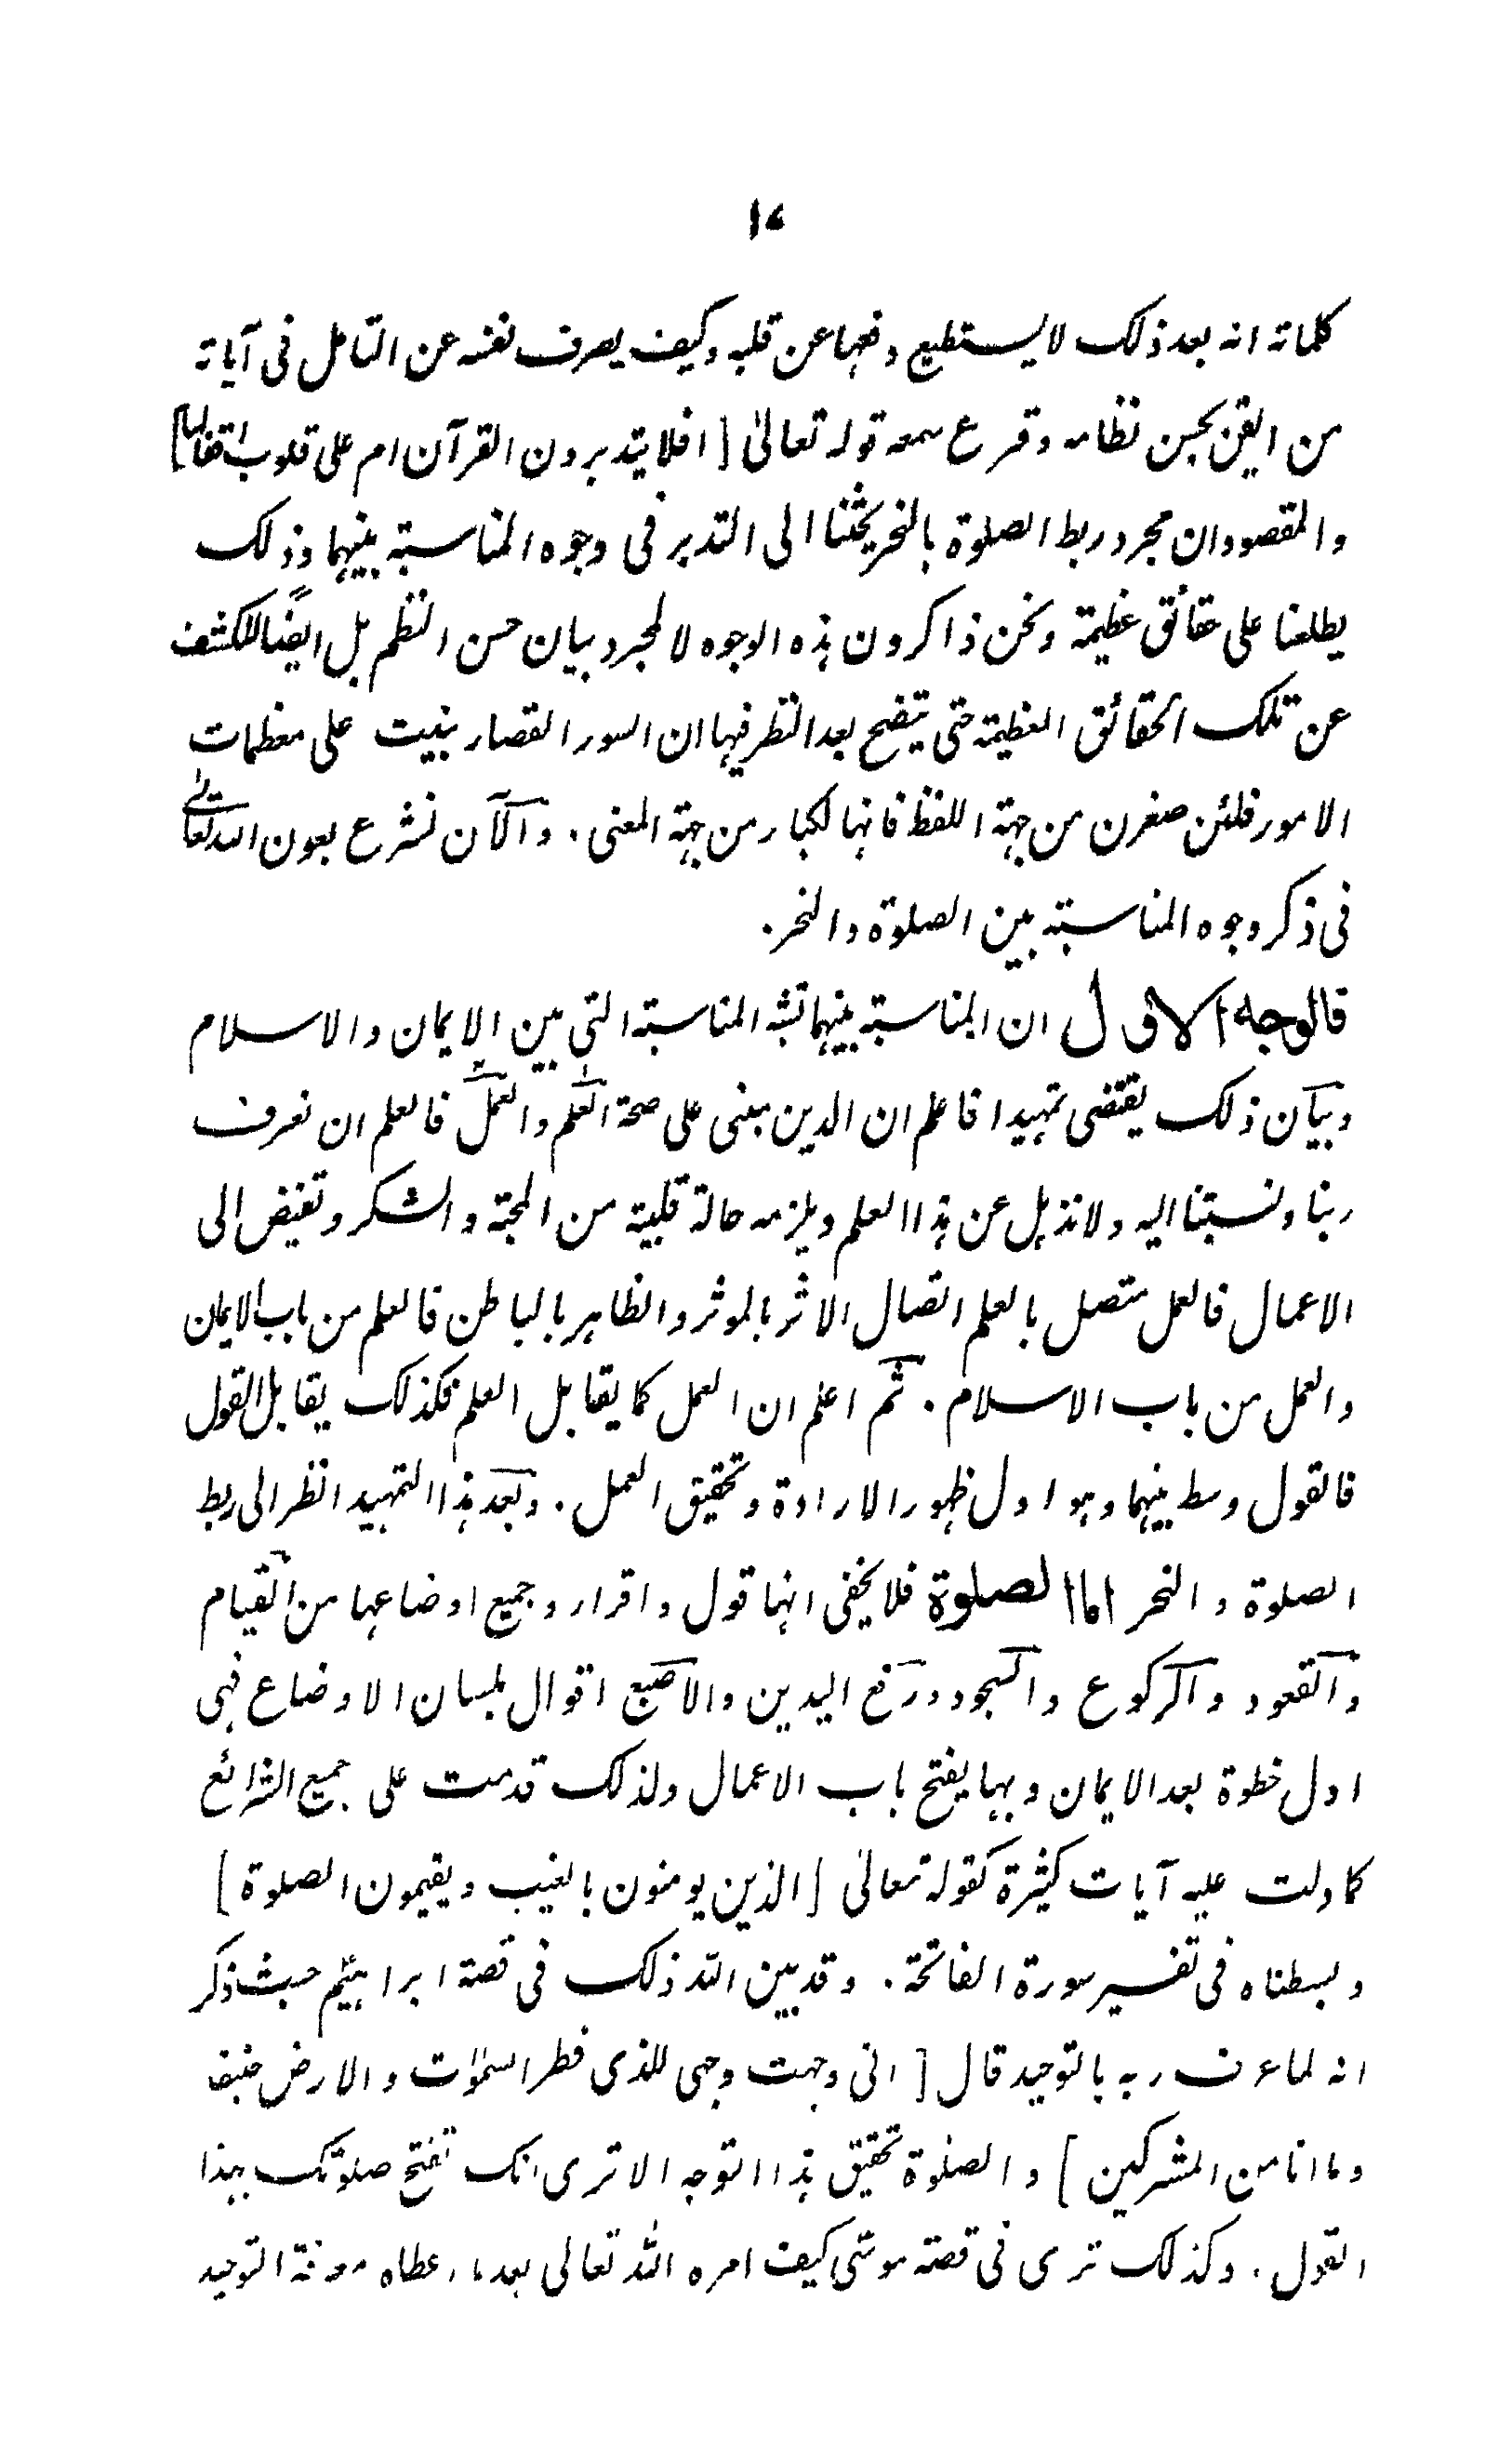 ١٧
كلماته انه بعد ذلك لا يستطيع دفعها عن قلبه وكيف يصرف نفسه عن التامل فى آياته
من ايقن بحسن نظامه وقرع سمعه قوله تعالىٰ [ افلا يتدبرون القرآن ام على قلوب اقفالها ]
والمقصود ان مجرد ربط الصلوة بالنحر يحثنا الى التدبر فى وجوه المناسبة بينهما وذلك
يطلعنا على حقائق عظيمة ونحن ذاكرون هذه الوجوه لا لمجرد بيان حسن النظم بل ايضًا للكشف
عن تلك الحقائق العظيمة حتى يتضح بعد النظر فيها ان السور القصار بنيت على معظمات
الامور فلئن صغرن من جهة اللفظ فانها لكبار من جهة المعنى . والآن نشرع بعون الله تعالىٰ
فى ذكر وجوه المناسبة بين الصلوة والنحر .
فالوجه الاول ان المناسبة بينهما تشبه المناسبة التى بين الايمان والاسلام
وبيان ذلك يقتضى تمهيدا فاعلم ان الدين مبنى على صحة العلم والعمل فالعلم ان نعرف
ربنا ونسبتنا اليه ولا نذهل عن هذا العلم ويلزمه حالة قلبية من المحبة والشكر وتفيض الى
الاعمال فالعمل متصل بالعلم اتصال الاثر بالموثر والظاهر بالباطن فالعلم من باب الايمان
والعمل من باب الاسلام . ثم اعلم ان العمل كما يقابل العلم فكذلك يقابل القول
فالقول وسط بينهما وهو اول ظهور الارادة وتحقيق العمل . وبعد هذا التمهيد انظر الى ربط
الصلوة والنحر اما الصلوة فلا يخفى انها قول واقرار وجميع اوضاعها من القيام
والقعود والركوع والسجود ورفع اليدين والاصبع اقوال بلسان الاوضاع فهى
اول خطوة بعد الايمان وبها يفتح باب الاعمال ولذلك قدمت على جميع الشرائع
كما دلت عليه آيات كثيرة كقوله تعالىٰ [ الذين يومنون بالغيب ويقيمون الصلوة ]
وبسطناه فى تفسير سورة الفاتحة . وقد بين الله ذلك فى قصة ابراهيم حيث ذكر
انه لما عرف ربه بالتوحيد قال [ انى وجهت وجهى للذى فطر السمٰوات والارض حنيفا
وما انا من المشركين ] والصلوة تحقيق هذا التوجه الا ترى انك تفتح صلوتك بهذا
القول . وكذلك ترى فى قصة موسىٰ كيف امره الله تعالى بعد ما اعطاه معرفة التوحيد